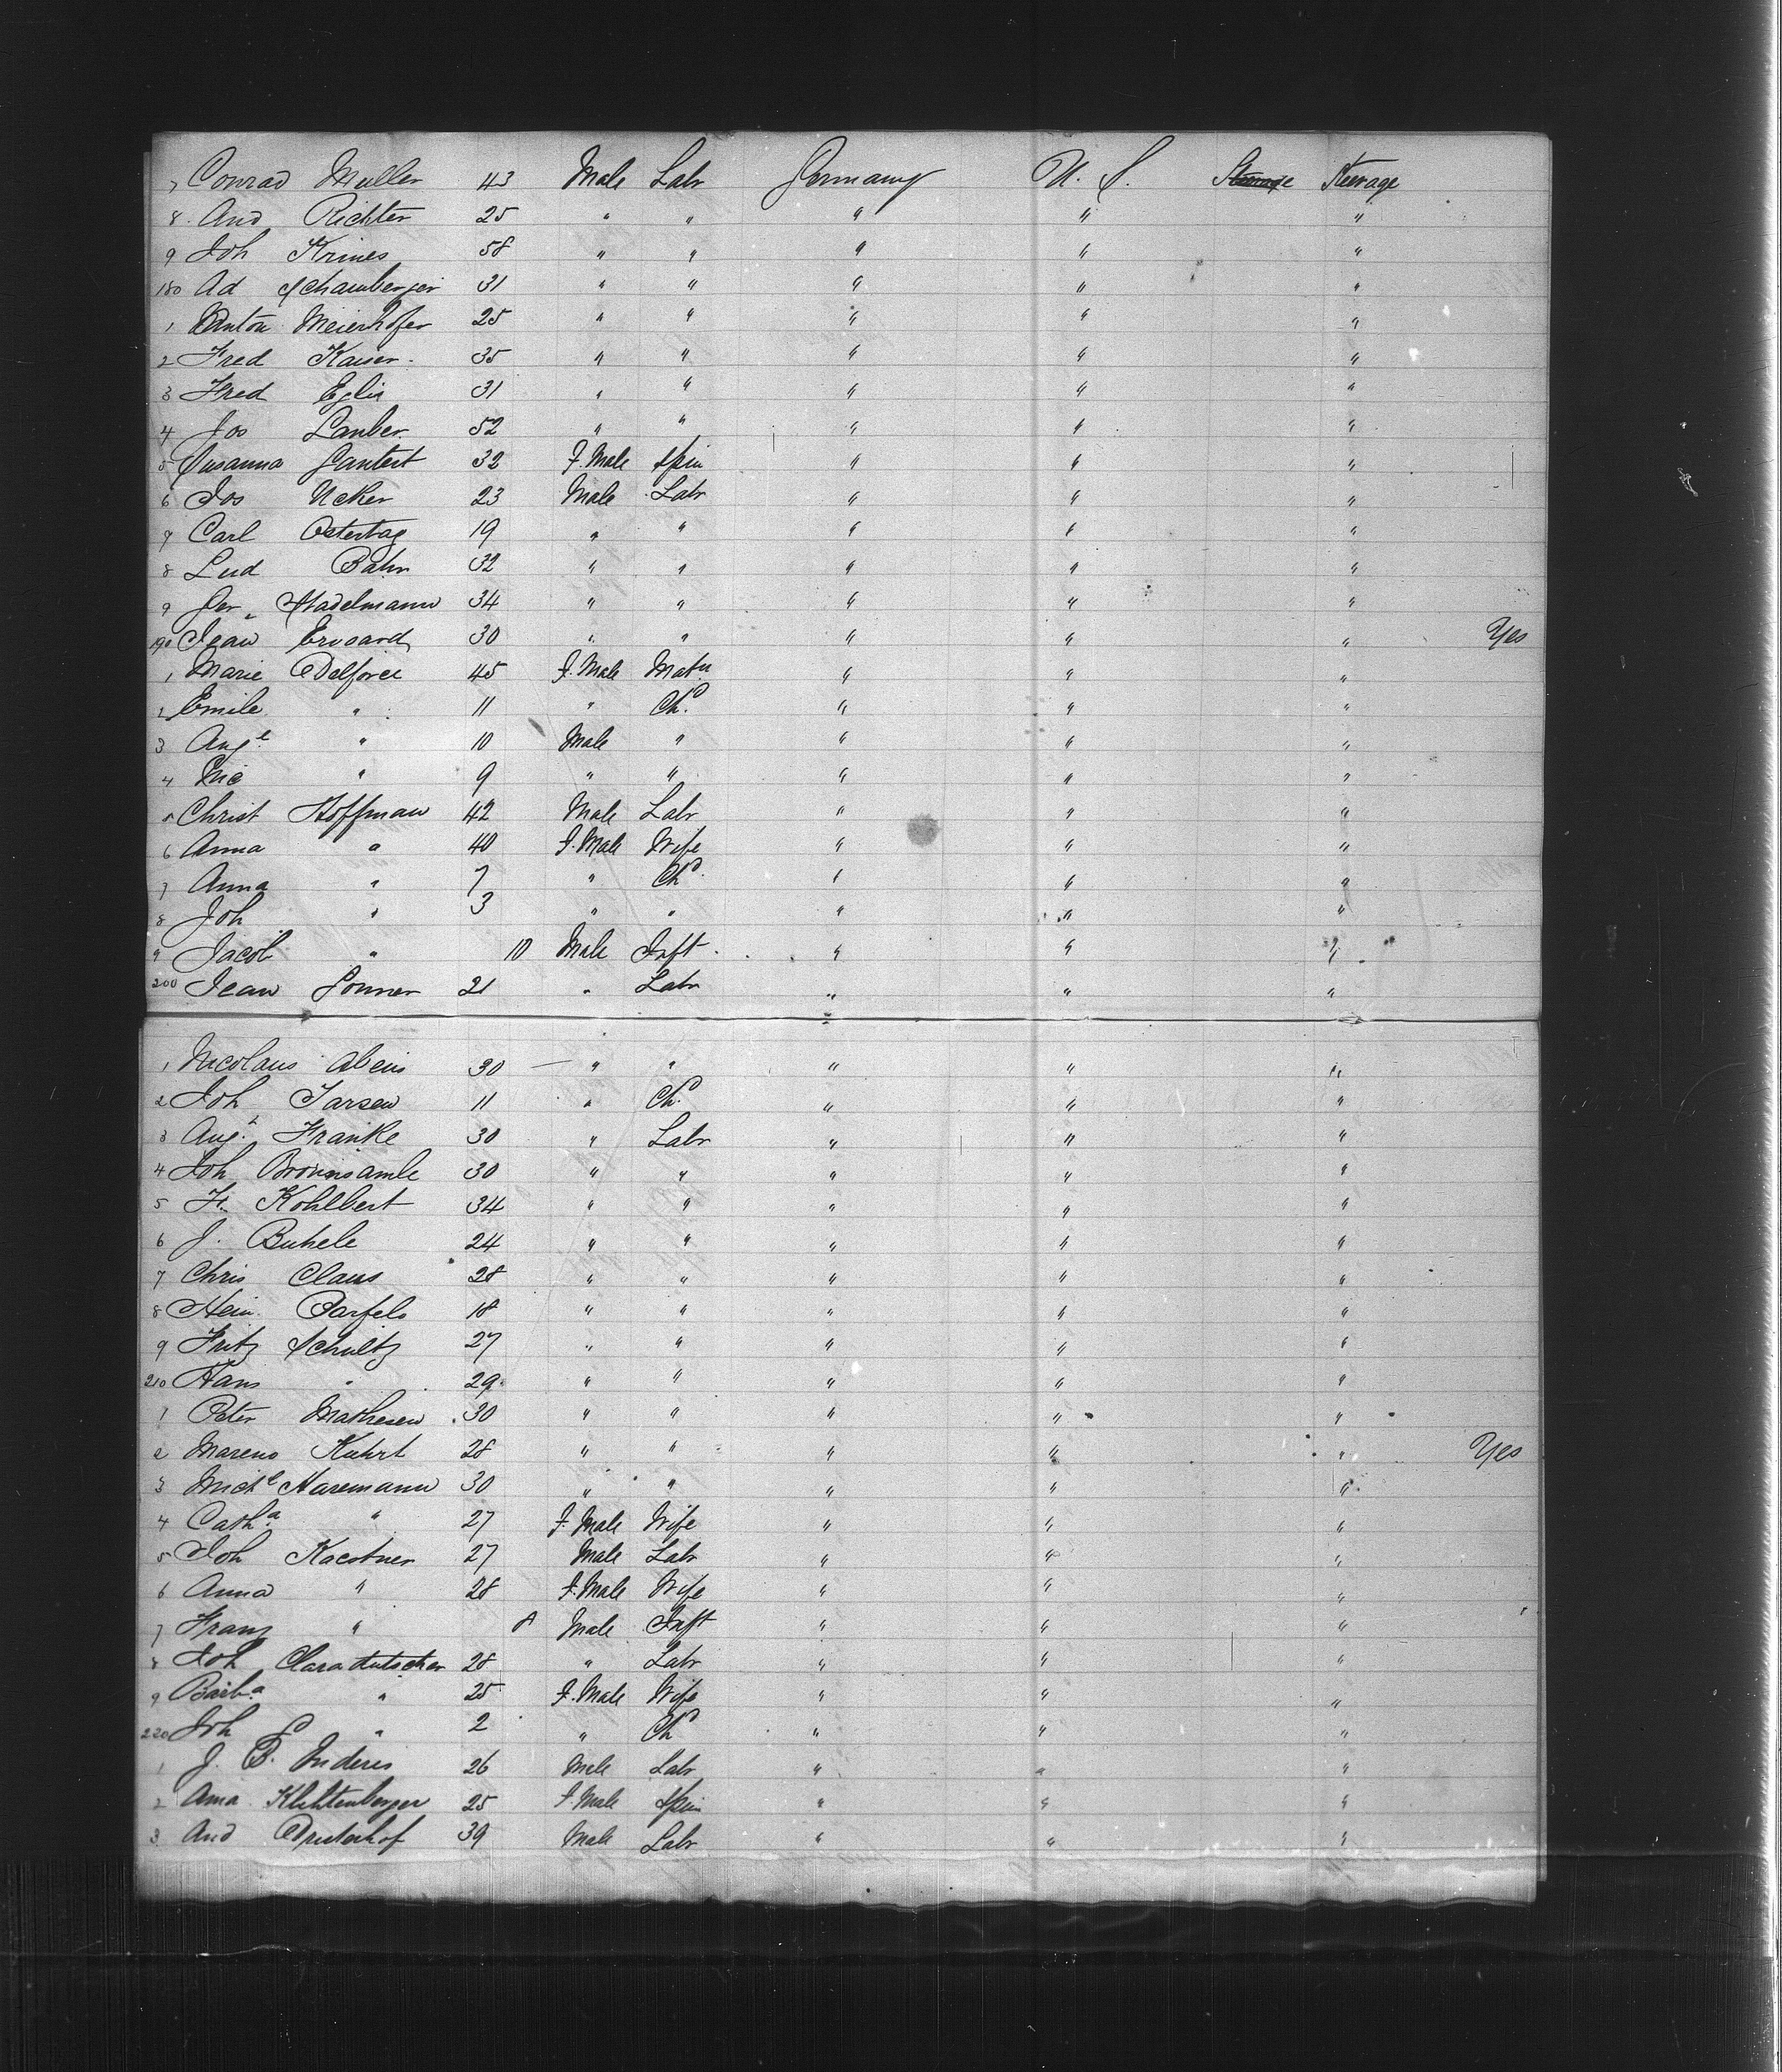 7 Conrad Muller 43 Male Labr Germany U. S. Steerage Steerage
8 And Richter 25 " " " " "
9 Joh Krines 58 " " " " "
180 Ad Schamberger 31 " " " " "
1 Anton Meierhofer 25 " " " " "
2 Fred Kaiser 35 " " " " "
3 Fred Eglis 31 " " " " "
4 Jos Lauber 52 " " " " "
5 Susanna Gantert 32 F. Male Spin " " "
6 Jos Ucker 23 Male Labr " " "
7 Carl Ostertag 19 " " " " "
8 Lud Bahr 32 " " " " "
9 Ger Stadelmann 34 " " " " "
190 Jean Erosard 30 " " " " " Yes
1 Marie Delforce 45 F. Male Matn " " "
2 Emile " 11 " Chd " " "
3 Auge " 10 Male " " " "
4 Nic " 9 " " " " "
5 Christ Hoffman 42 Male Labr " " "
6 Anna " 40 F. Male Wife " " "
7 Anna " 7 " Chd " " "
8 Joh " 3 " " " " "
9 Jacob " 10 Male Inft " " "
200 Jean Sonner 21 " Labr " " "
1 Nicolaus Abeis 30 " " " " "
2 Joh Jarsen 11 " Chd " " "
3 Augt Franke 30 " Labr " " "
4 Joh 30 " " " " "
5 Fr. Kohlbert 34 " " " " "
6 J. Buhele 24 " " " " "
7 Chris Claus 28 " " " " "
8 Hein. Parfels 18 " " " " "
9 Fritz Schultz 27 " " " " "
210 Hans " 29 " " " " "
1 Peter Mathesen 30 " " " " "
2 Mareno Kuhrt 28 " " " " " Yes
3 Michl Haremann 30 " " " " "
4 Catha " 27 F. Male Wife " " "
5 Joh Kaestner 27 Male Labr " " "
6 Anna " 28 F. Male Wife " " "
7 Franz " 8 Male Inft " " "
8 Joh 28 " Labr " " "
9 Barba " 25 F. Male Wife " " "
220 Joh " 2 " Chd " " "
1 J. B. Inderis 26 Male Labr " " "
2 Ama Klihtenberger 25 F. Male Spin " " "
3 And 39 Male Labr " " "